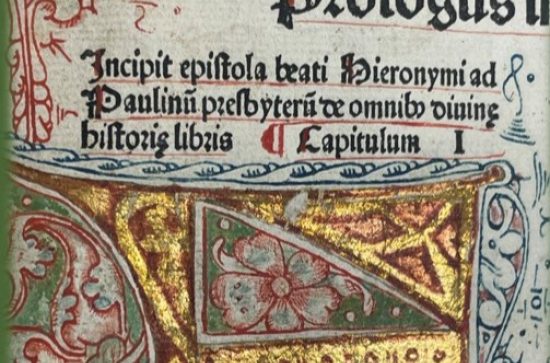 Prologus
Incipit epistola beati Hieronymi ad
Paulinū presbyterū de omnibꝰ diuinę
historię libris ¶ Capitulum I